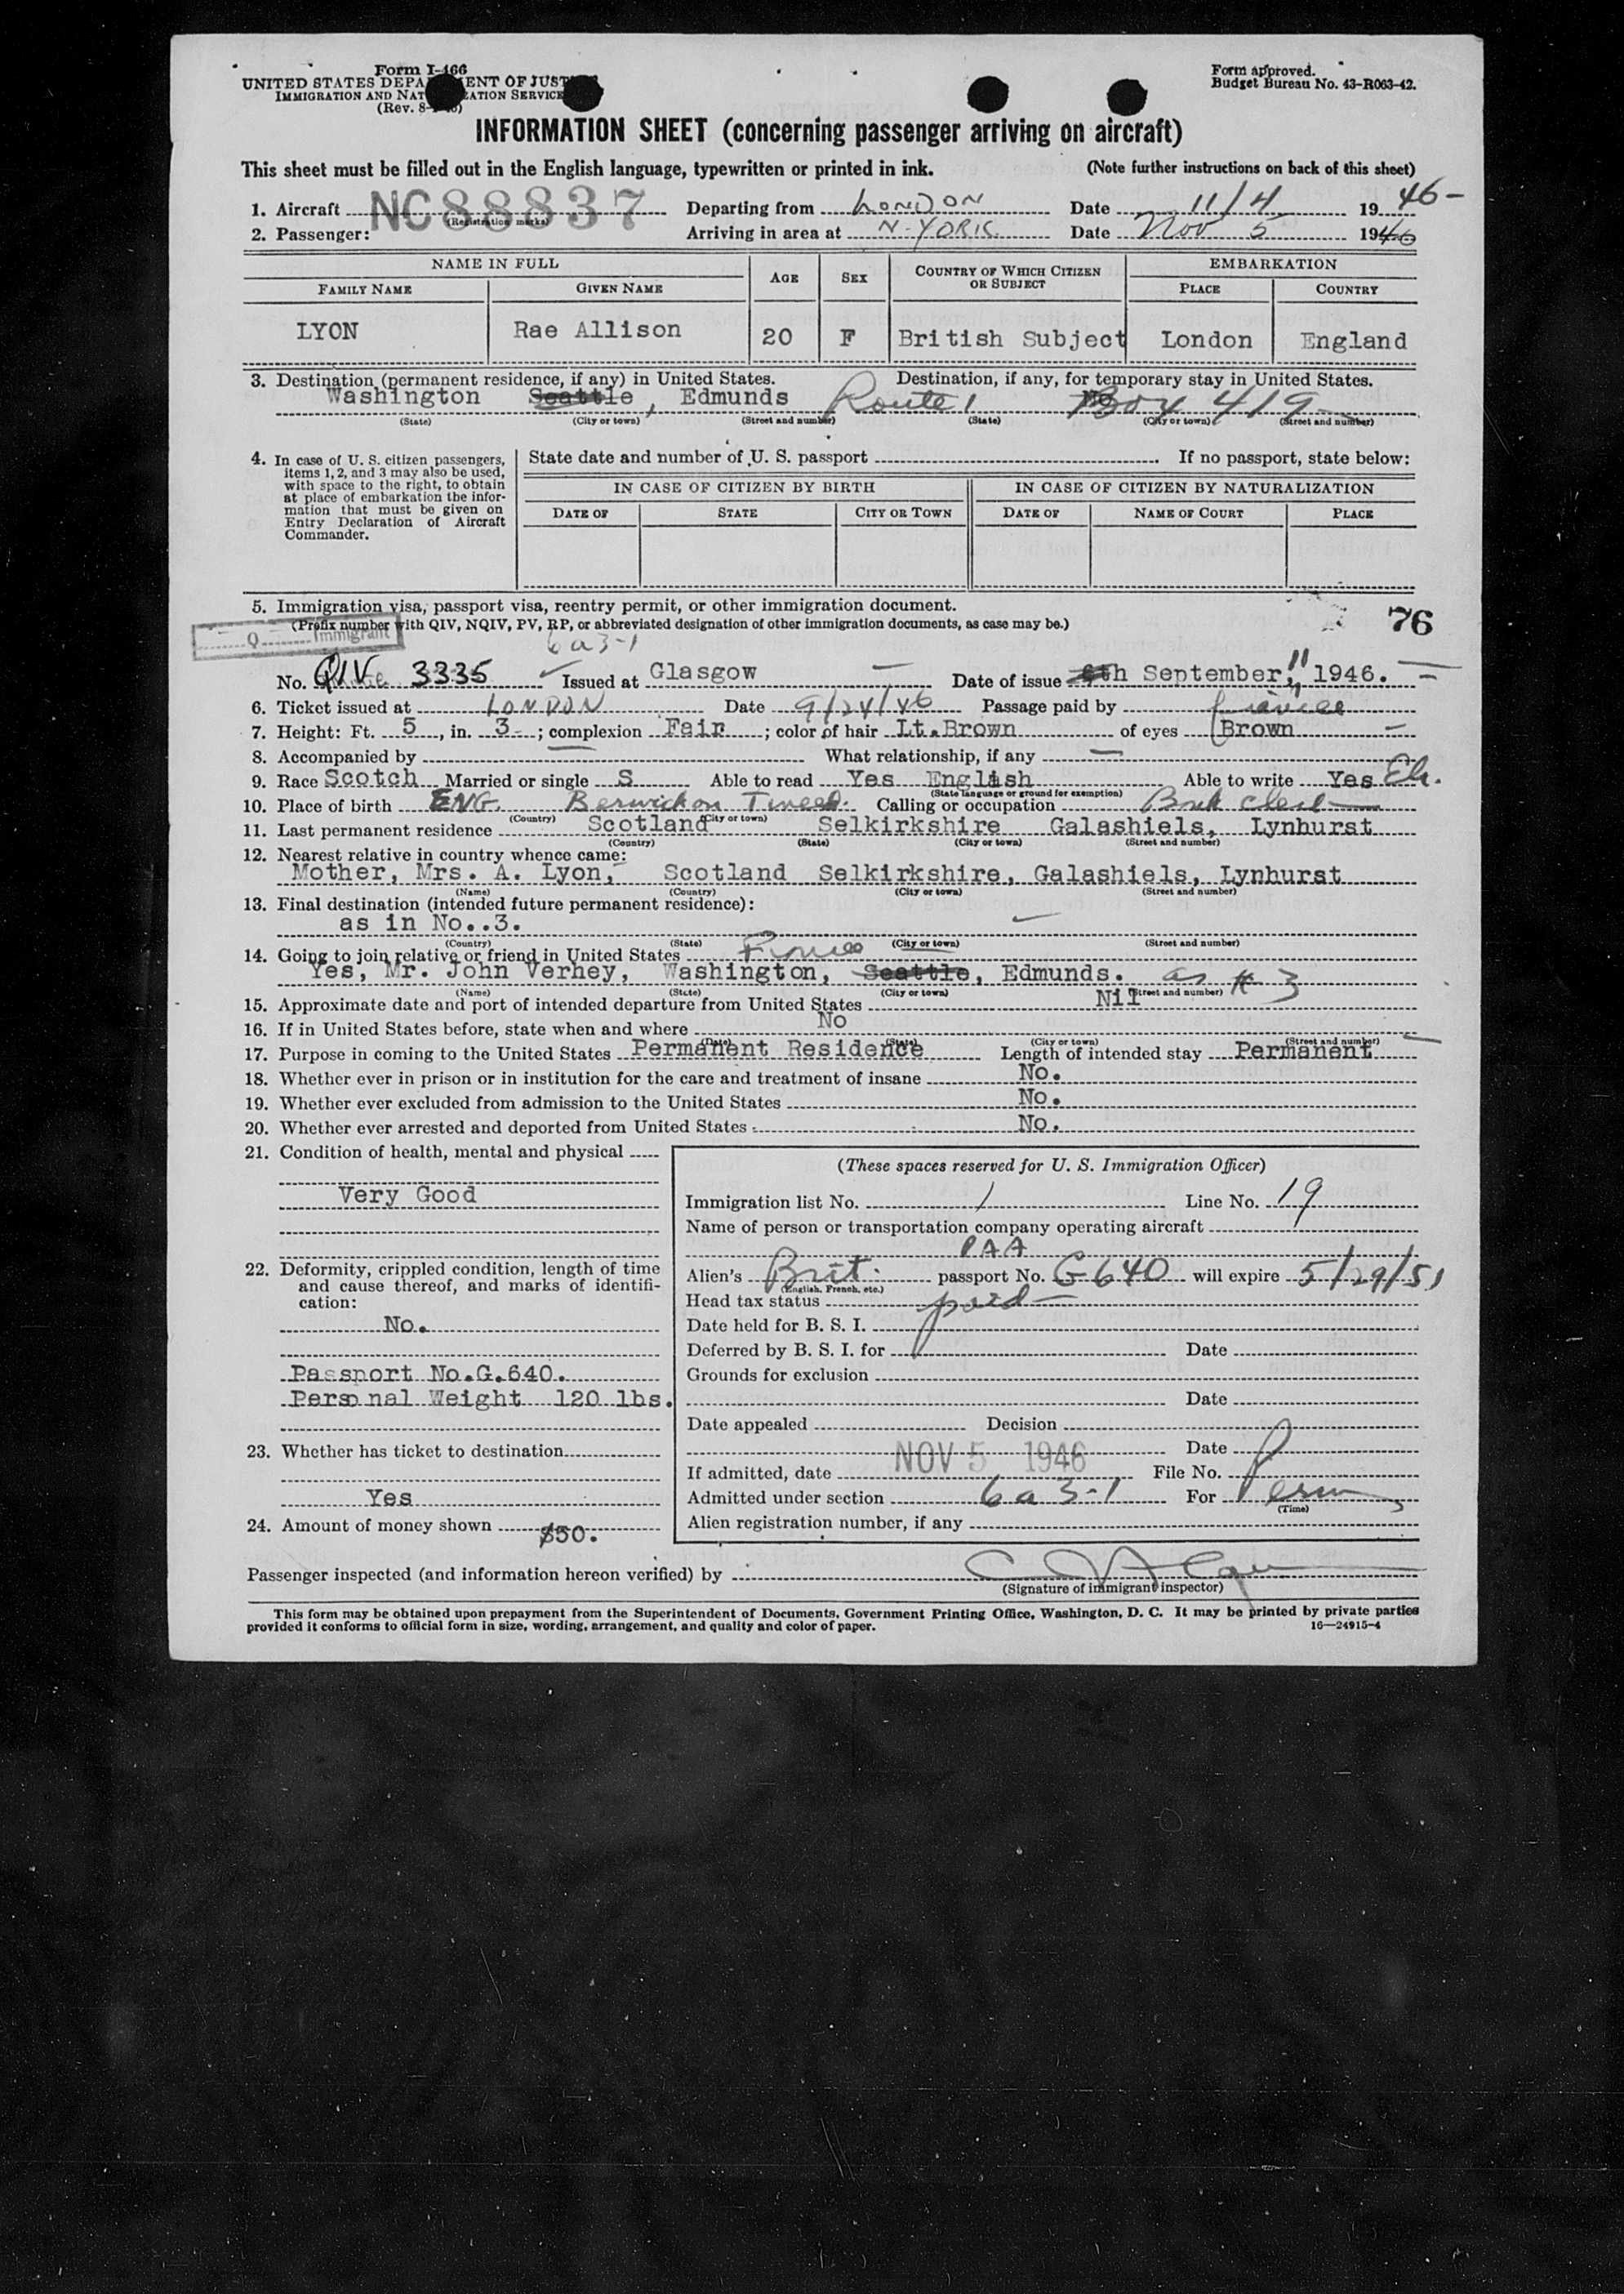 Form I-466
UNITED STATES DEPA ENT OF JUST
IMMIGRATION AND NAT ATION SERVICE
(Rev. 8- )
Form approved.
Budget Bureau No. 43-R063-42.
INFORMATION SHEET (concerning passenger arriving on aircraft)
This sheet must be filled out in the English language, typewritten or printed in ink. (Note further instructions on back of this sheet)
1. Aircraft NC88837 Departing from LONDON Date 11/4 1946-
(Registration marks)
2. Passenger: Arriving in area at N-YORK. Date Nov 5 1946
NAME IN FULL AGE SEX COUNTRY OF WHICH CITIZEN OR SUBJECT EMBARKATION
FAMILY NAME GIVEN NAME PLACE COUNTRY
LYON Rae Allison 20 F British Subject London England
3. Destination (permanent residence, if any) in United States. Destination, if any, for temporary stay in United States.
Washington Seattle, Edmunds Route 1 Box 419
(State) (City or town) (Street and number) (State) (City or town) (Street and number)
4. In case of U. S. citizen passengers, items 1, 2, and 3 may also be used, with space to the right, to obtain at place of embarkation the information that must be given on Entry Declaration of Aircraft Commander.
State date and number of U. S. passport If no passport, state below:
IN CASE OF CITIZEN BY BIRTH IN CASE OF CITIZEN BY NATURALIZATION
DATE OF STATE CITY OR TOWN DATE OF NAME OF COURT PLACE
5. Immigration visa, passport visa, reentry permit, or other immigration document.
(Prefix number with QIV, NQIV, PV, RP, or abbreviated designation of other immigration documents, as case may be.)
76
Q Immigrant
6a3-1
No. QIV 3335 Issued at Glasgow Date of issue 6th September, 11 1946.
6. Ticket issued at LONDON Date 9/24/46 Passage paid by fiancee
7. Height: Ft. 5, in. 3; complexion Fair; color of hair Lt.Brown of eyes Brown
8. Accompanied by What relationship, if any
9. Race Scotch Married or single S Able to read Yes English Able to write Yes
(State language or ground for exemption)
10. Place of birth ENG. Berwick on Tweed. Calling or occupation
(Country) (City or town)
11. Last permanent residence Scotland Selkirkshire Galashiels, Lynhurst
(Country) (State) (City or town) (Street and number)
12. Nearest relative in country whence came:
Mother, Mrs. A. Lyon, Scotland Selkirkshire, Galashiels, Lynhurst
(Name) (Country) (City or town) (Street and number)
13. Final destination (intended future permanent residence):
as in No..3.
(Country) (State) (City or town) (Street and number)
14. Going to join relative or friend in United States Fiancee
Yes, Mr. John Verhey, Washington, Seattle, Edmunds. as # 3
(Name) (State) (City or town) (Street and number)
15. Approximate date and port of intended departure from United States Nil
16. If in United States before, state when and where No
(Date) (State) (City or town) (Street and number)
17. Purpose in coming to the United States Permanent Residence Length of intended stay Permanent
18. Whether ever in prison or in institution for the care and treatment of insane No.
19. Whether ever excluded from admission to the United States No.
20. Whether ever arrested and deported from United States No.
21. Condition of health, mental and physical
Very Good
22. Deformity, crippled condition, length of time and cause thereof, and marks of identification:
No.
Passport No.G.640.
Personal Weight 120 lbs.
23. Whether has ticket to destination
Yes
24. Amount of money shown $50.
(These spaces reserved for U. S. Immigration Officer)
Immigration list No. 1 Line No. 19
Name of person or transportation company operating aircraft
PAA
Alien's Brit. passport No. G 640 will expire 5/29/51
(English, French, etc.)
Head tax status paid
Date held for B. S. I.
Deferred by B. S. I. for Date
Grounds for exclusion
Date
Date appealed Decision
Date
If admitted, date NOV 5 1946 File No.
Admitted under section 6a3-1 For Perm
(Time)
Alien registration number, if any
Passenger inspected (and information hereon verified) by
(Signature of immigrant inspector)
This form may be obtained upon prepayment from the Superintendent of Documents, Government Printing Office, Washington, D. C. It may be printed by private parties
provided it conforms to official form in size, wording, arrangement, and quality and color of paper. 16—24915-4